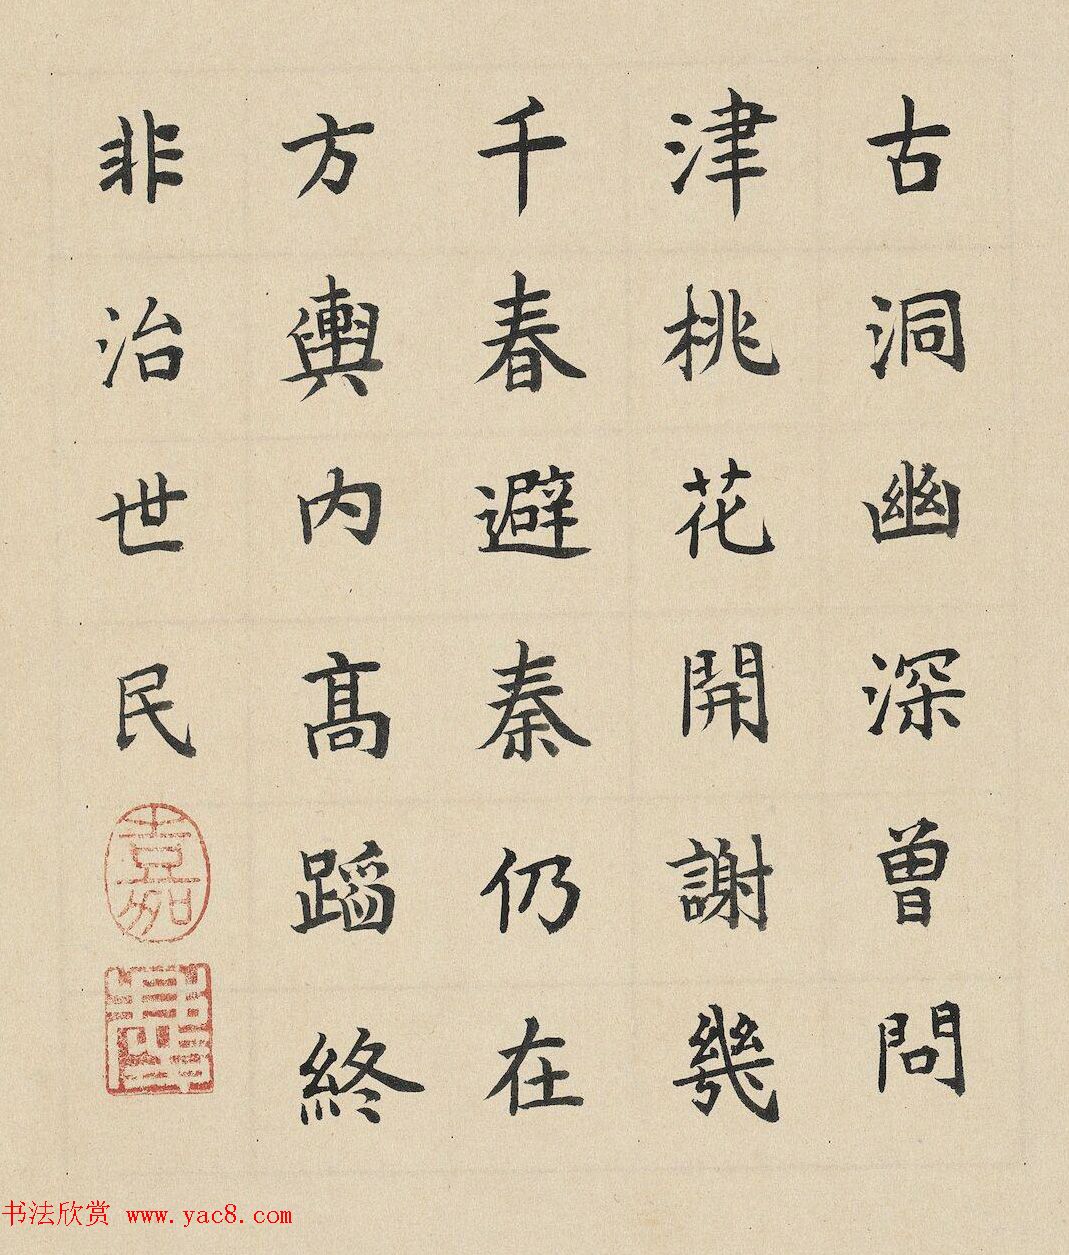 古洞幽深曾問
津桃花開謝幾
千春避秦仍在
方輿内髙蹈終
非治世民
嘉
書法欣赏 www.yac8.com